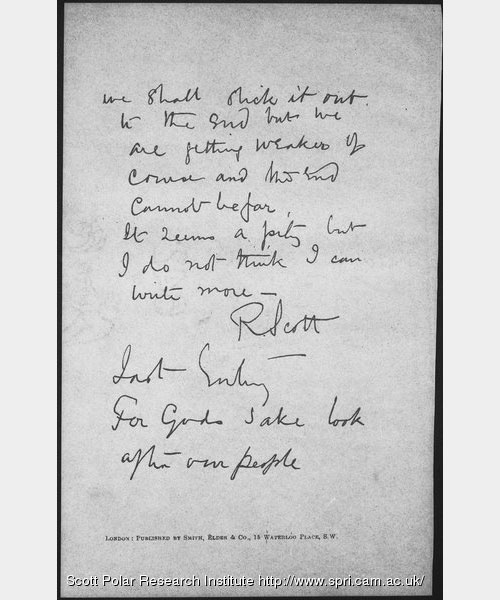 we shall stick it out
to the End but we
are getting weaker of
course and the End
cannot be far,
It seems a pity but
I do not think I can
write more —
R. Scott
Last Entry
For Gods Sake look
after our people
LONDON: PUBLISHED BY SMITH, ELDER & CO., 15 WATERLOO PLACE, S.W.
Scott Polar Research Institute http://www.spri.cam.ac.uk/